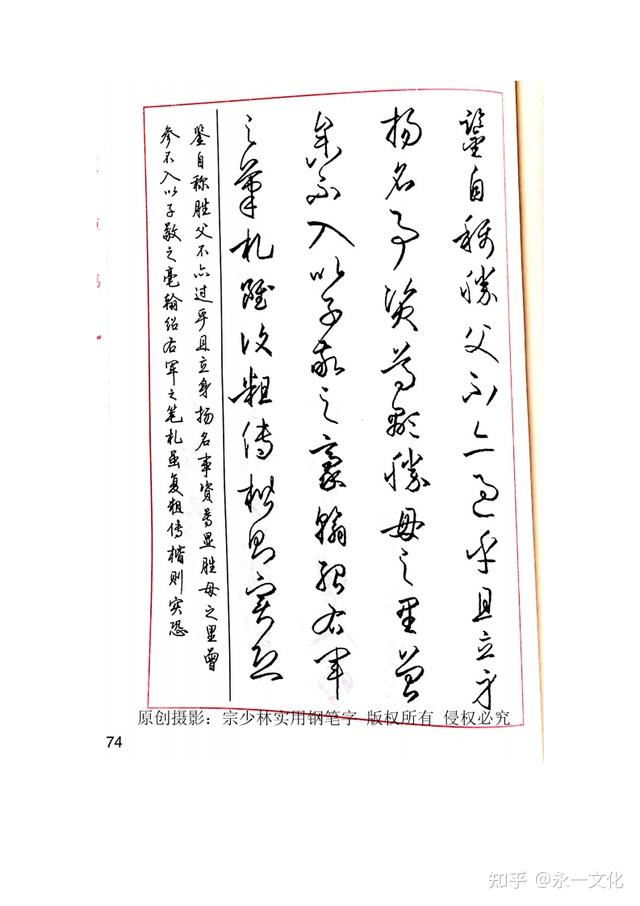 鑒自稱勝父不亦過乎且立身
揚名事資尊顯勝母之里曾
參不入以子敬之豪翰紹右軍
之筆札雖復粗傳楷則實恐
鉴自称胜父不亦过乎且立身扬名事资尊显胜母之里曾
参不入以子敬之毫翰绍右军之笔札虽复粗传楷则实恐
原创摄影：宗少林实用钢笔字 版权所有 侵权必究
74
知乎 @永一文化